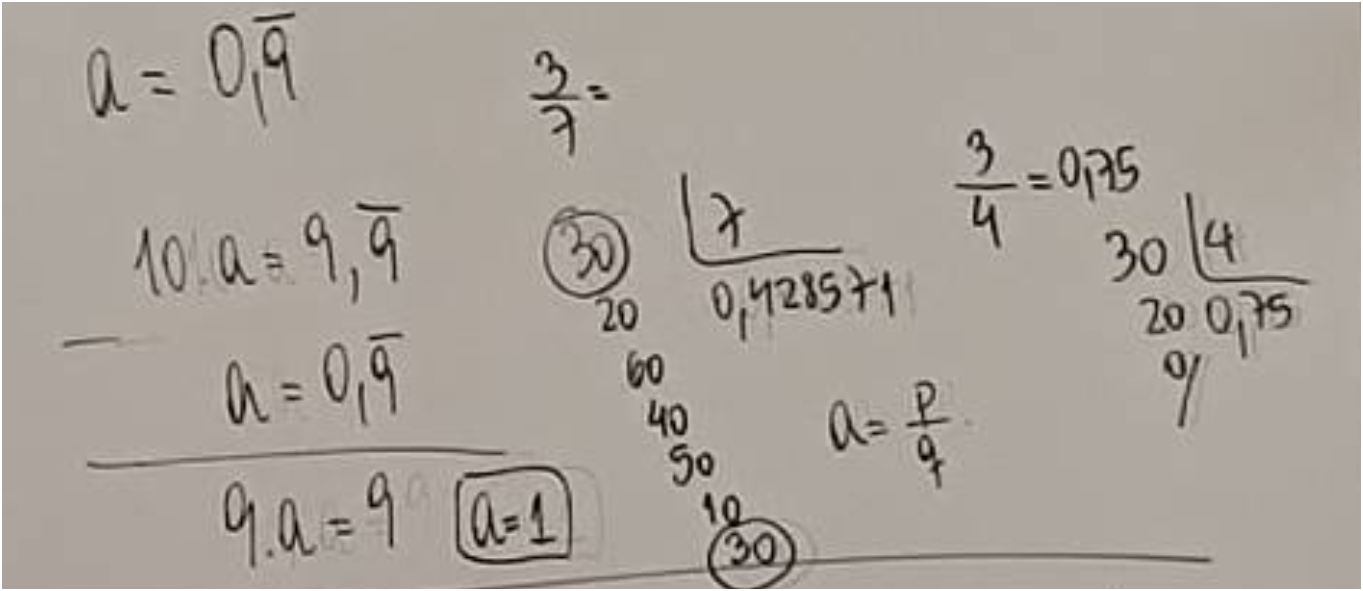 a = 0,9̅
10.a = 9,9̅
— a = 0,9̅
9.a = 9 a=1
3/7 =
30 7
20 0,428571
60
40
50
10
30
a = p/q
3/4 = 0,75
30 4
20 0,75
0/